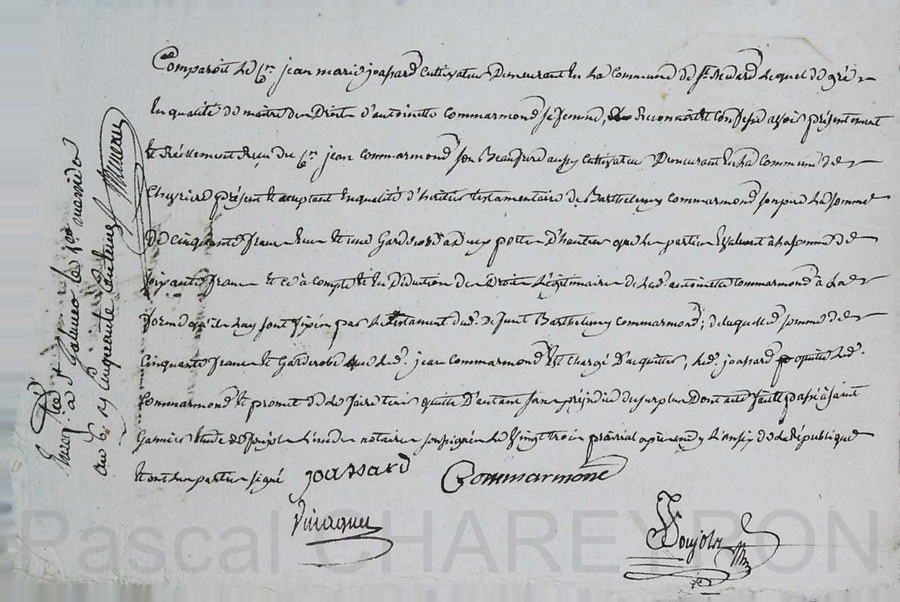 Comparoit le Cn jean marie joassard cultivateur demeurant en la commune de st medard lequel de gré
en qualité de maitre des Droits d'antoinette commarmond sa femme, reconnoit et confesse avoir présentement
et réellement reçu du Cn jean commarmond son Beaufrere aussy cultivateur demeurant en la commune de
Chevrieres présent et acceptant en qualité d'heritier testamentaire de Barthelemy commarmond son pere la somme
de cinquante francs et une Garderobe a deux portes que les parties Evaluent à la somme de
soixante francs et ce à compte et en déduction des Droits Légitimaires de lad. antoinette commarmond à la
forme qu'ils luy sont fixés par le testament dud. defunt Barthelemy commarmond; de laquelle somme de
cinquante francs et Garderobe que led. jean commarmond Est chargé d'acquitter, led. joassard quitte led.
Commarmond et promet de le faire tenir quitte d'autant sans préjudice du surplus Dont acte fait et passé à saint
Galmier Etude de Poujols notaire soussigné le Vingt trois prairial an de la République
et ont les parties signé joassard Commarmond
Poujols
Enreg. à st Galmier le
cinquante centimes
Pascal CHAREYRON